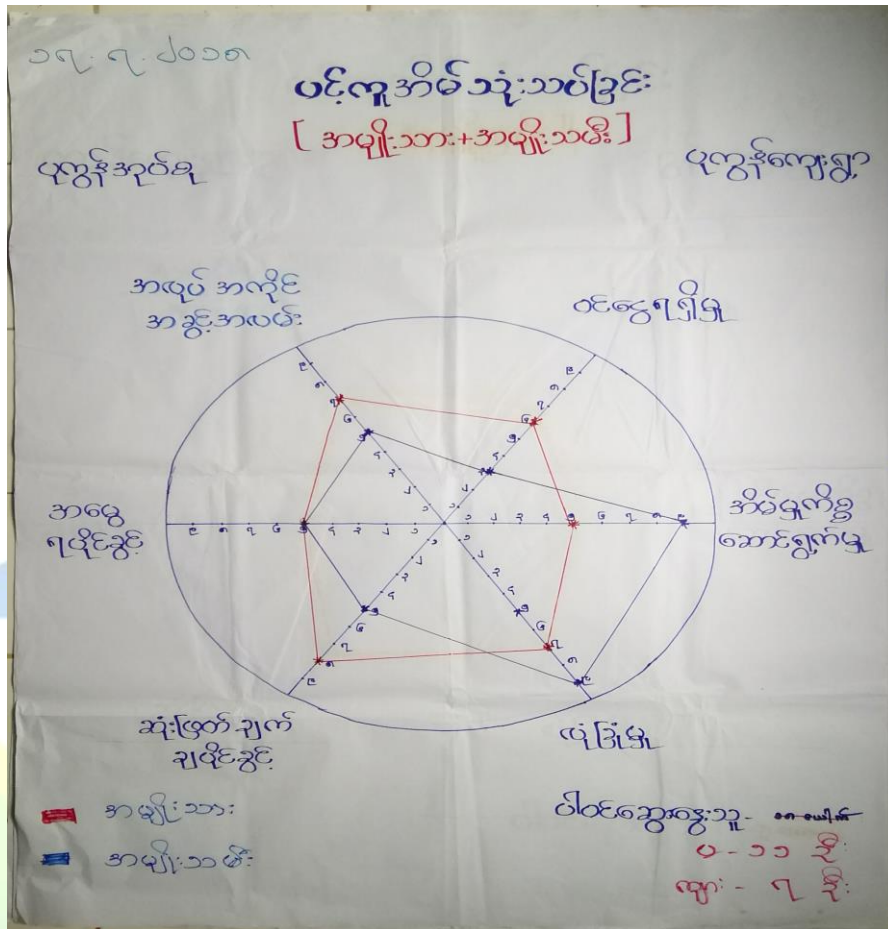 ၁၇.၇.၂၀၁၈
ပင့်ကူအိမ်သုံးသပ်ခြင်း
[အမျိုးသား+အမျိုးသမီး]
ပုကွန်အုပ်စု
ပုကွန်ကျေးရွာ
အလုပ်အကိုင်
အခွင့်အလမ်း
ဝင်ငွေရရှိမှု
အမွေ
ရပိုင်ခွင့်
အိမ်မှုကိစ္စ
ဆောင်ရွက်မှု
ဆုံးဖြတ်ချက်
ချပိုင်ခွင့်
လုံခြုံမှု
အမျိုးသား
အမျိုးသမီး
ပါဝင်ဆွေးနွေးသူ-
မ - ၁၁ ဦး
ကျား - ၇ ဦး